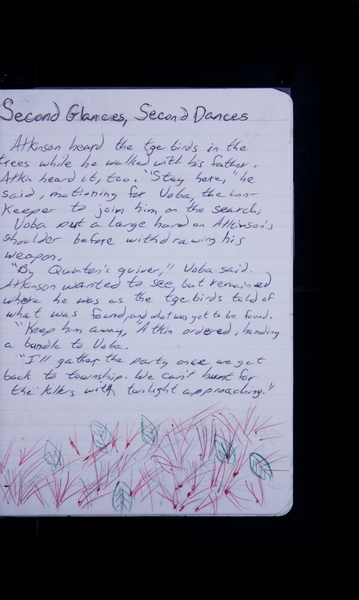 Second Glances, Second Dances
Atkinson heard the tge birds in the
trees while he walked with his father.
Atkin heard it, too. "Stay here," he
said, motioning for Voba, the inn-
keeper to join him on the search.
Voba put a large hand on Atkinson's
shoulder before withdrawing his
weapon.
"By Quinten's quiver," Voba said.
Atkinson wanted to see, but remained
where he was as the tge birds told of
what was found, and what was yet to be found.
"Keep him away," Atkin ordered, handing
a bundle to Voba.
"I'll gather the party once we get
back to township. We can't hunt for
the killers with twilight approaching."